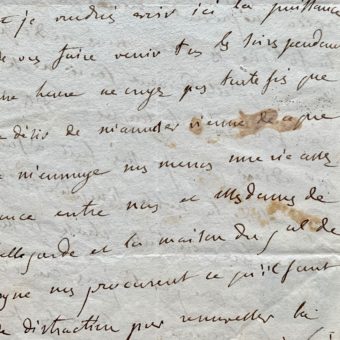 je voudrais avoir ici la puissance
de vous faire venir tous les soirs pendant
une heure ne croyez pas toutefois que
désir de m'amuser vienne de ce que
m'ennuye nous menons une vie assez
entre nous et Mesdames de
et la maison du gal de
nous procurent ce qu'il faut
de distraction pour renouveller la